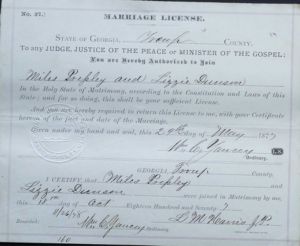 MARRIAGE LICENSE.
STATE OF GEORGIA, Troup COUNTY.
To any JUDGE, JUSTICE OF THE PEACE or MINISTER OF THE GOSPEL:
You are Hereby Authorized to Join
Miles Poepley and Lizzie Dunson
In the Holy State of Matrimony, according to the Constitution and Laws of this
State; and for so doing, this shall be your sufficient License.
And you are hereby required to return this License to me, with your Certificate
hereon of the fact and date of the Marriage.
Given under my hand and seal, this 28th day of May 1877
Wm C Yancey
Ordinary.
GEORGIA, Troup County,
I CERTIFY, that Miles Poepley and
Lizzie Dunson were joined in Matrimony by me,
this day of Oct Eighteen Hundred and Seventy 7
Recorded L M Harris J.P.
Wm C Yancey
Ordinary.
160